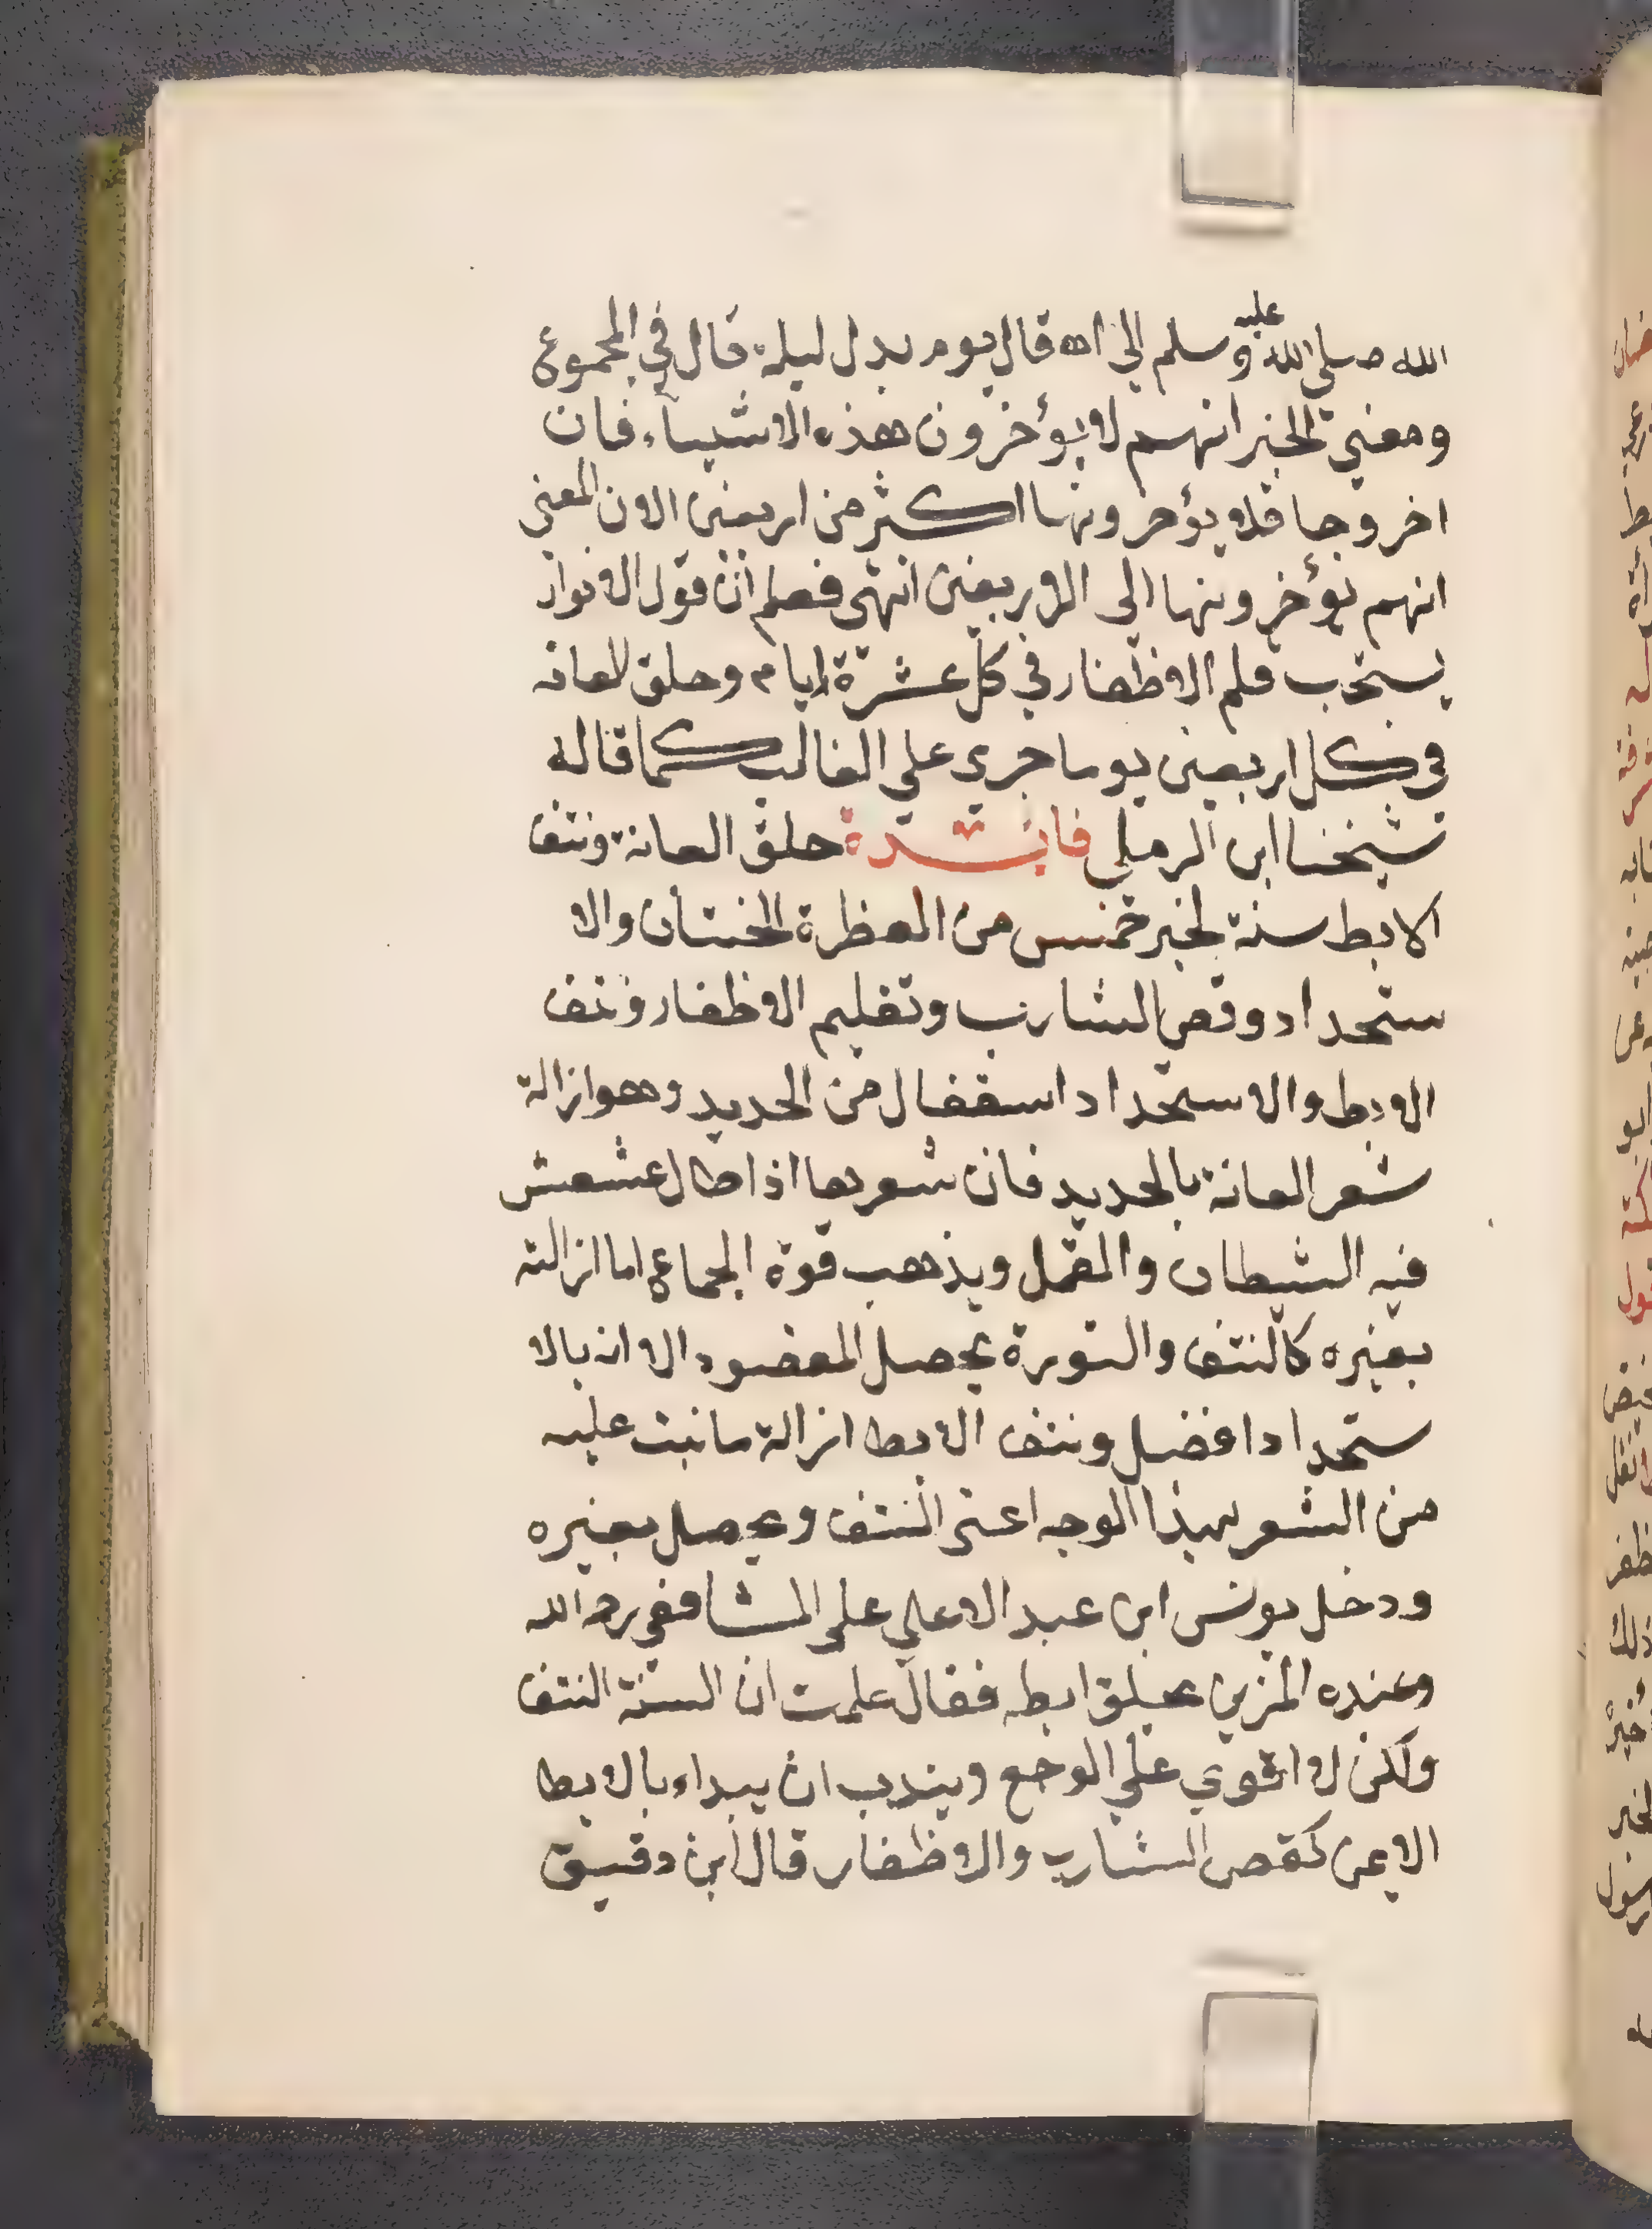 الله صلي الله عليه وسلم الي اه قال يوم بدل ليلة قال في المجموع
ومعني الخبر انهم لا يؤخرون هذه الاشيآء فان
اخروها فلا يؤخرونها اكثر من اربعين الا ن المعني
انهم يؤخرونها الى الاربعين انتهى فعلم ان قول الانوار
يستحب قلم الاظفار في كل عشرة ايام وحلق العانه
في كل اربعين يوما جري علي الغالب كما قاله
شيخنا ابن الرملي فائدة حلق العانة ونتف
الابط سنة لخبر خمس من الفطرة الختان والا
ستحداد وقص الشارب وتقليم الاظفار ونتف
الابط والاستحداد استفعال من الحديد وهو ازالة
شعر العانة بالحديد فان شعرها اذا طال عشعش
فيه الشيطان والقمل ويذهب قوة الجماع اما ازالته
بغيره كالنتف والنورة يحصل المقصود الا انه بالا
ستحداد افضل ونتف الابط ازالة ما نبت عليه
من الشعر بهذا الوجه اعنى النتف ويحصل بغيره
ودخل يونس ابن عبد الاعلي على الشافعي رحمه الله
وعنده المزين يحلق ابطه فقال علمت ان السنة النتف
ولكن لا اقوي علي الوجع ويندب ان يبداء بالابط
الايمن كقص الشارب والاظفار قال ابن دقيق